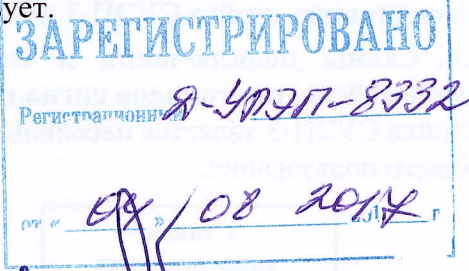 ует.
ЗАРЕГИСТРИРОВАНО
Регистрационный Д-УПЭП-8332
от « 04 » 08 2017 г